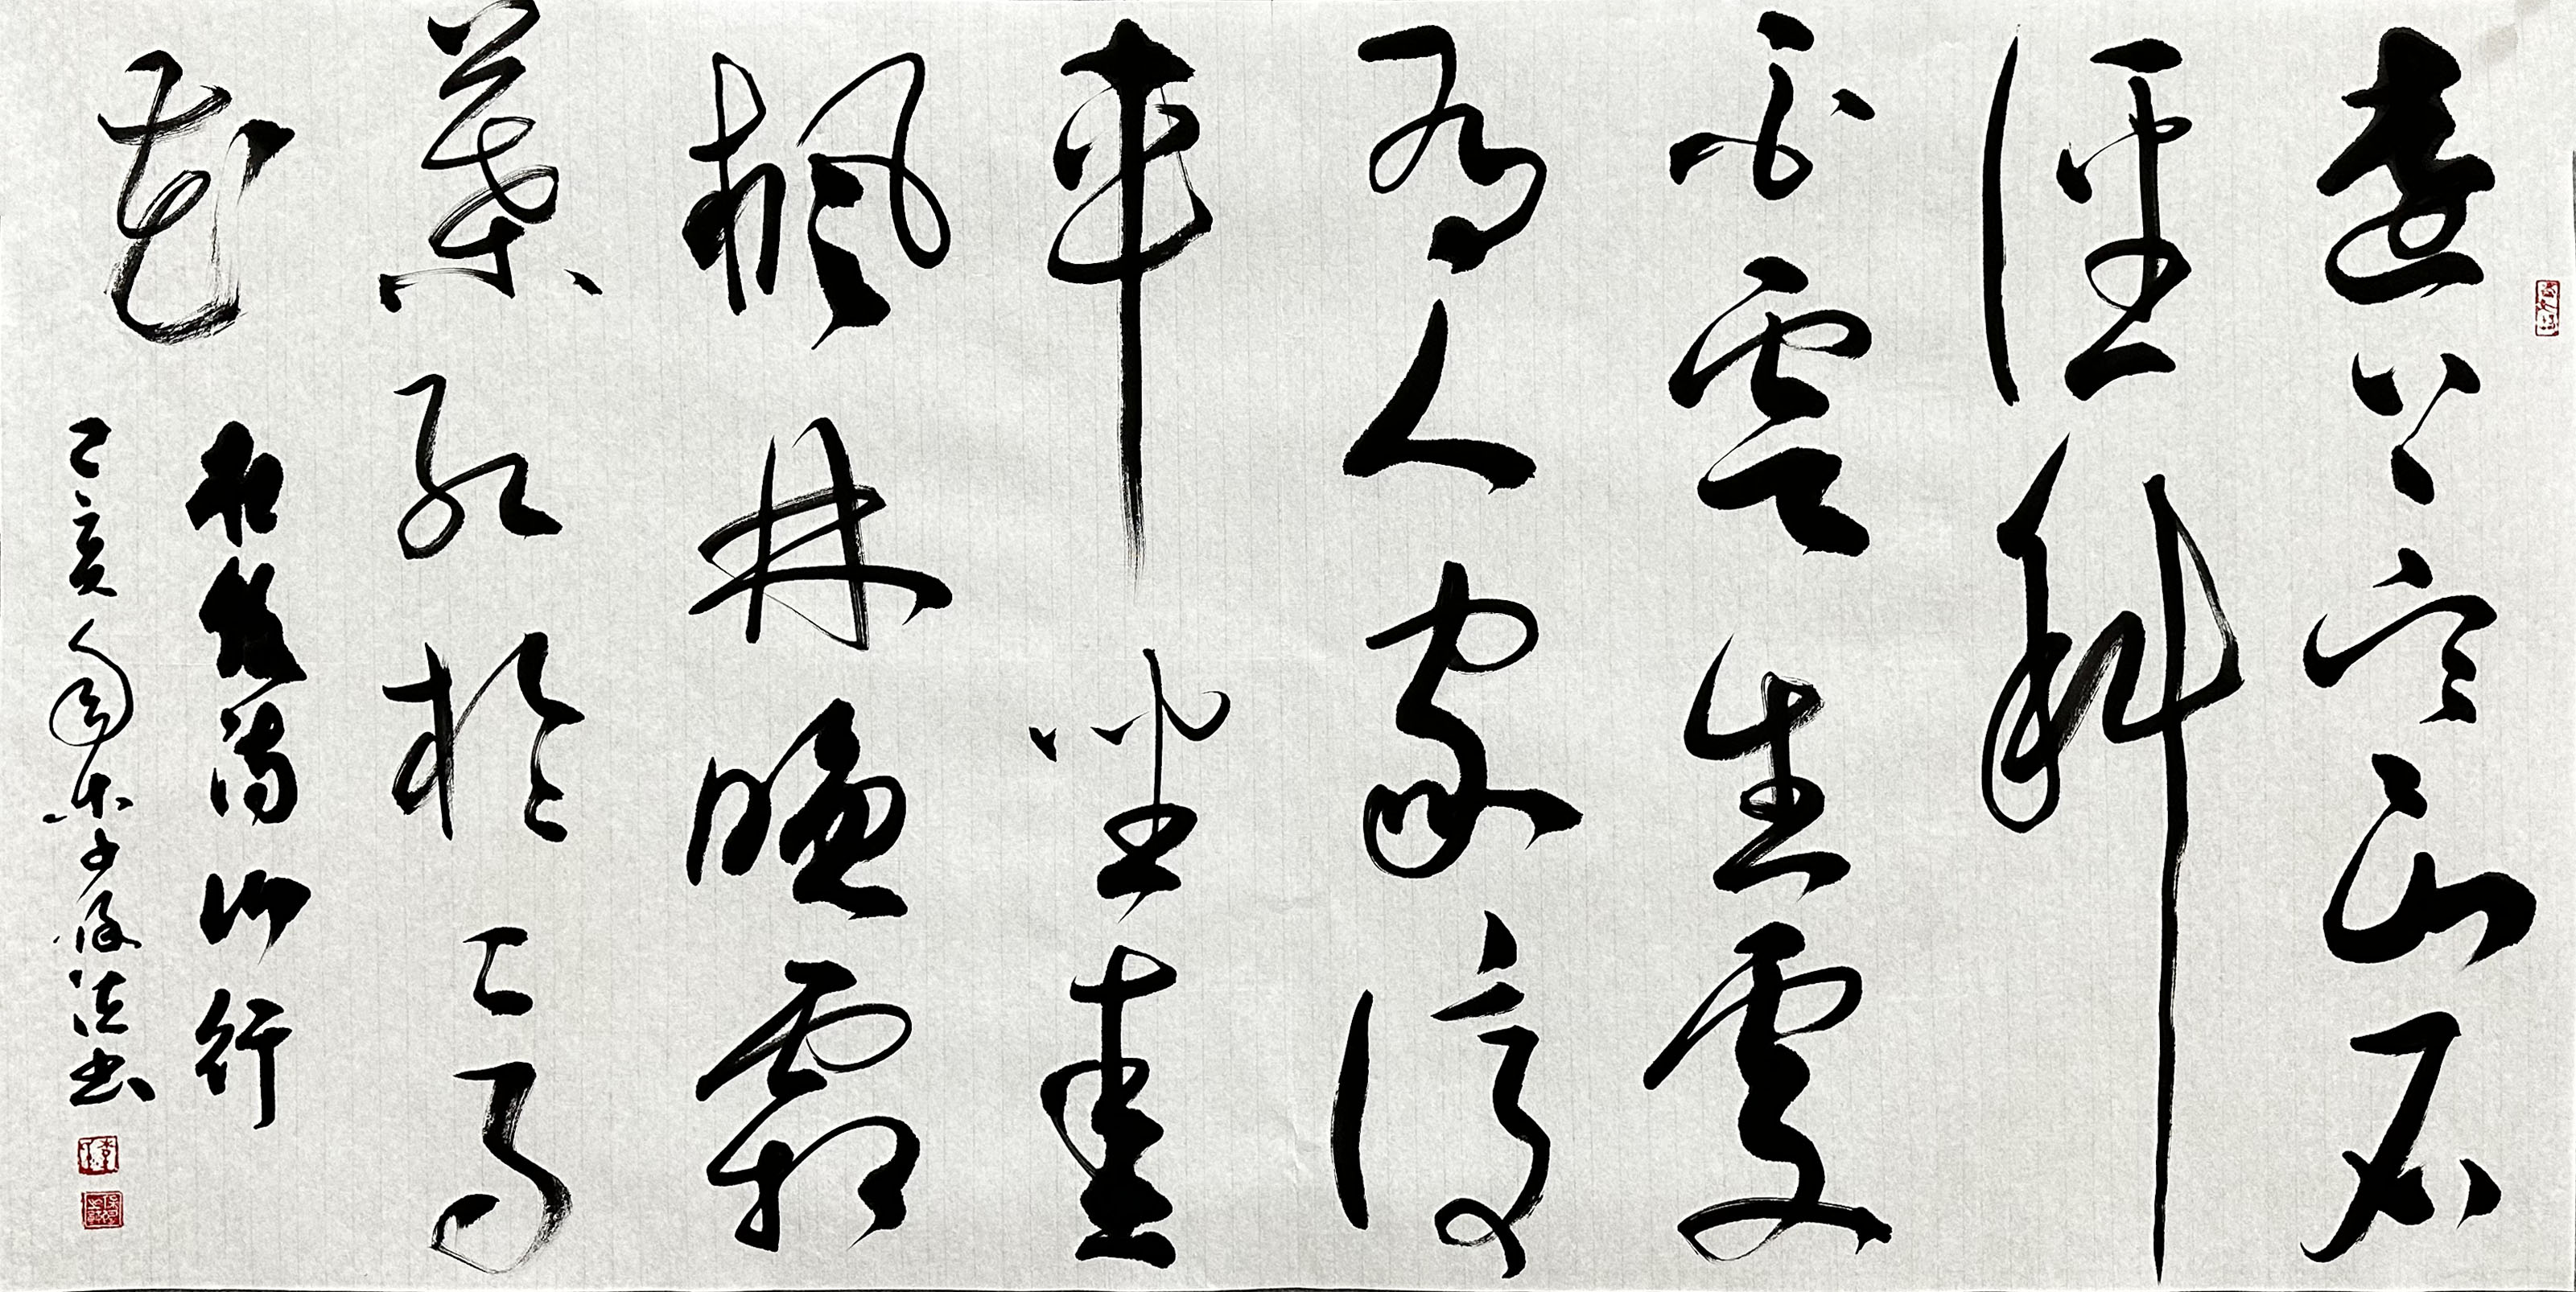 遠上寒山石
徑斜
白雲生處
有人家停
車坐愛
楓林晚霜
葉紅於二月
花
杜牧詩山行
己亥 李保 书